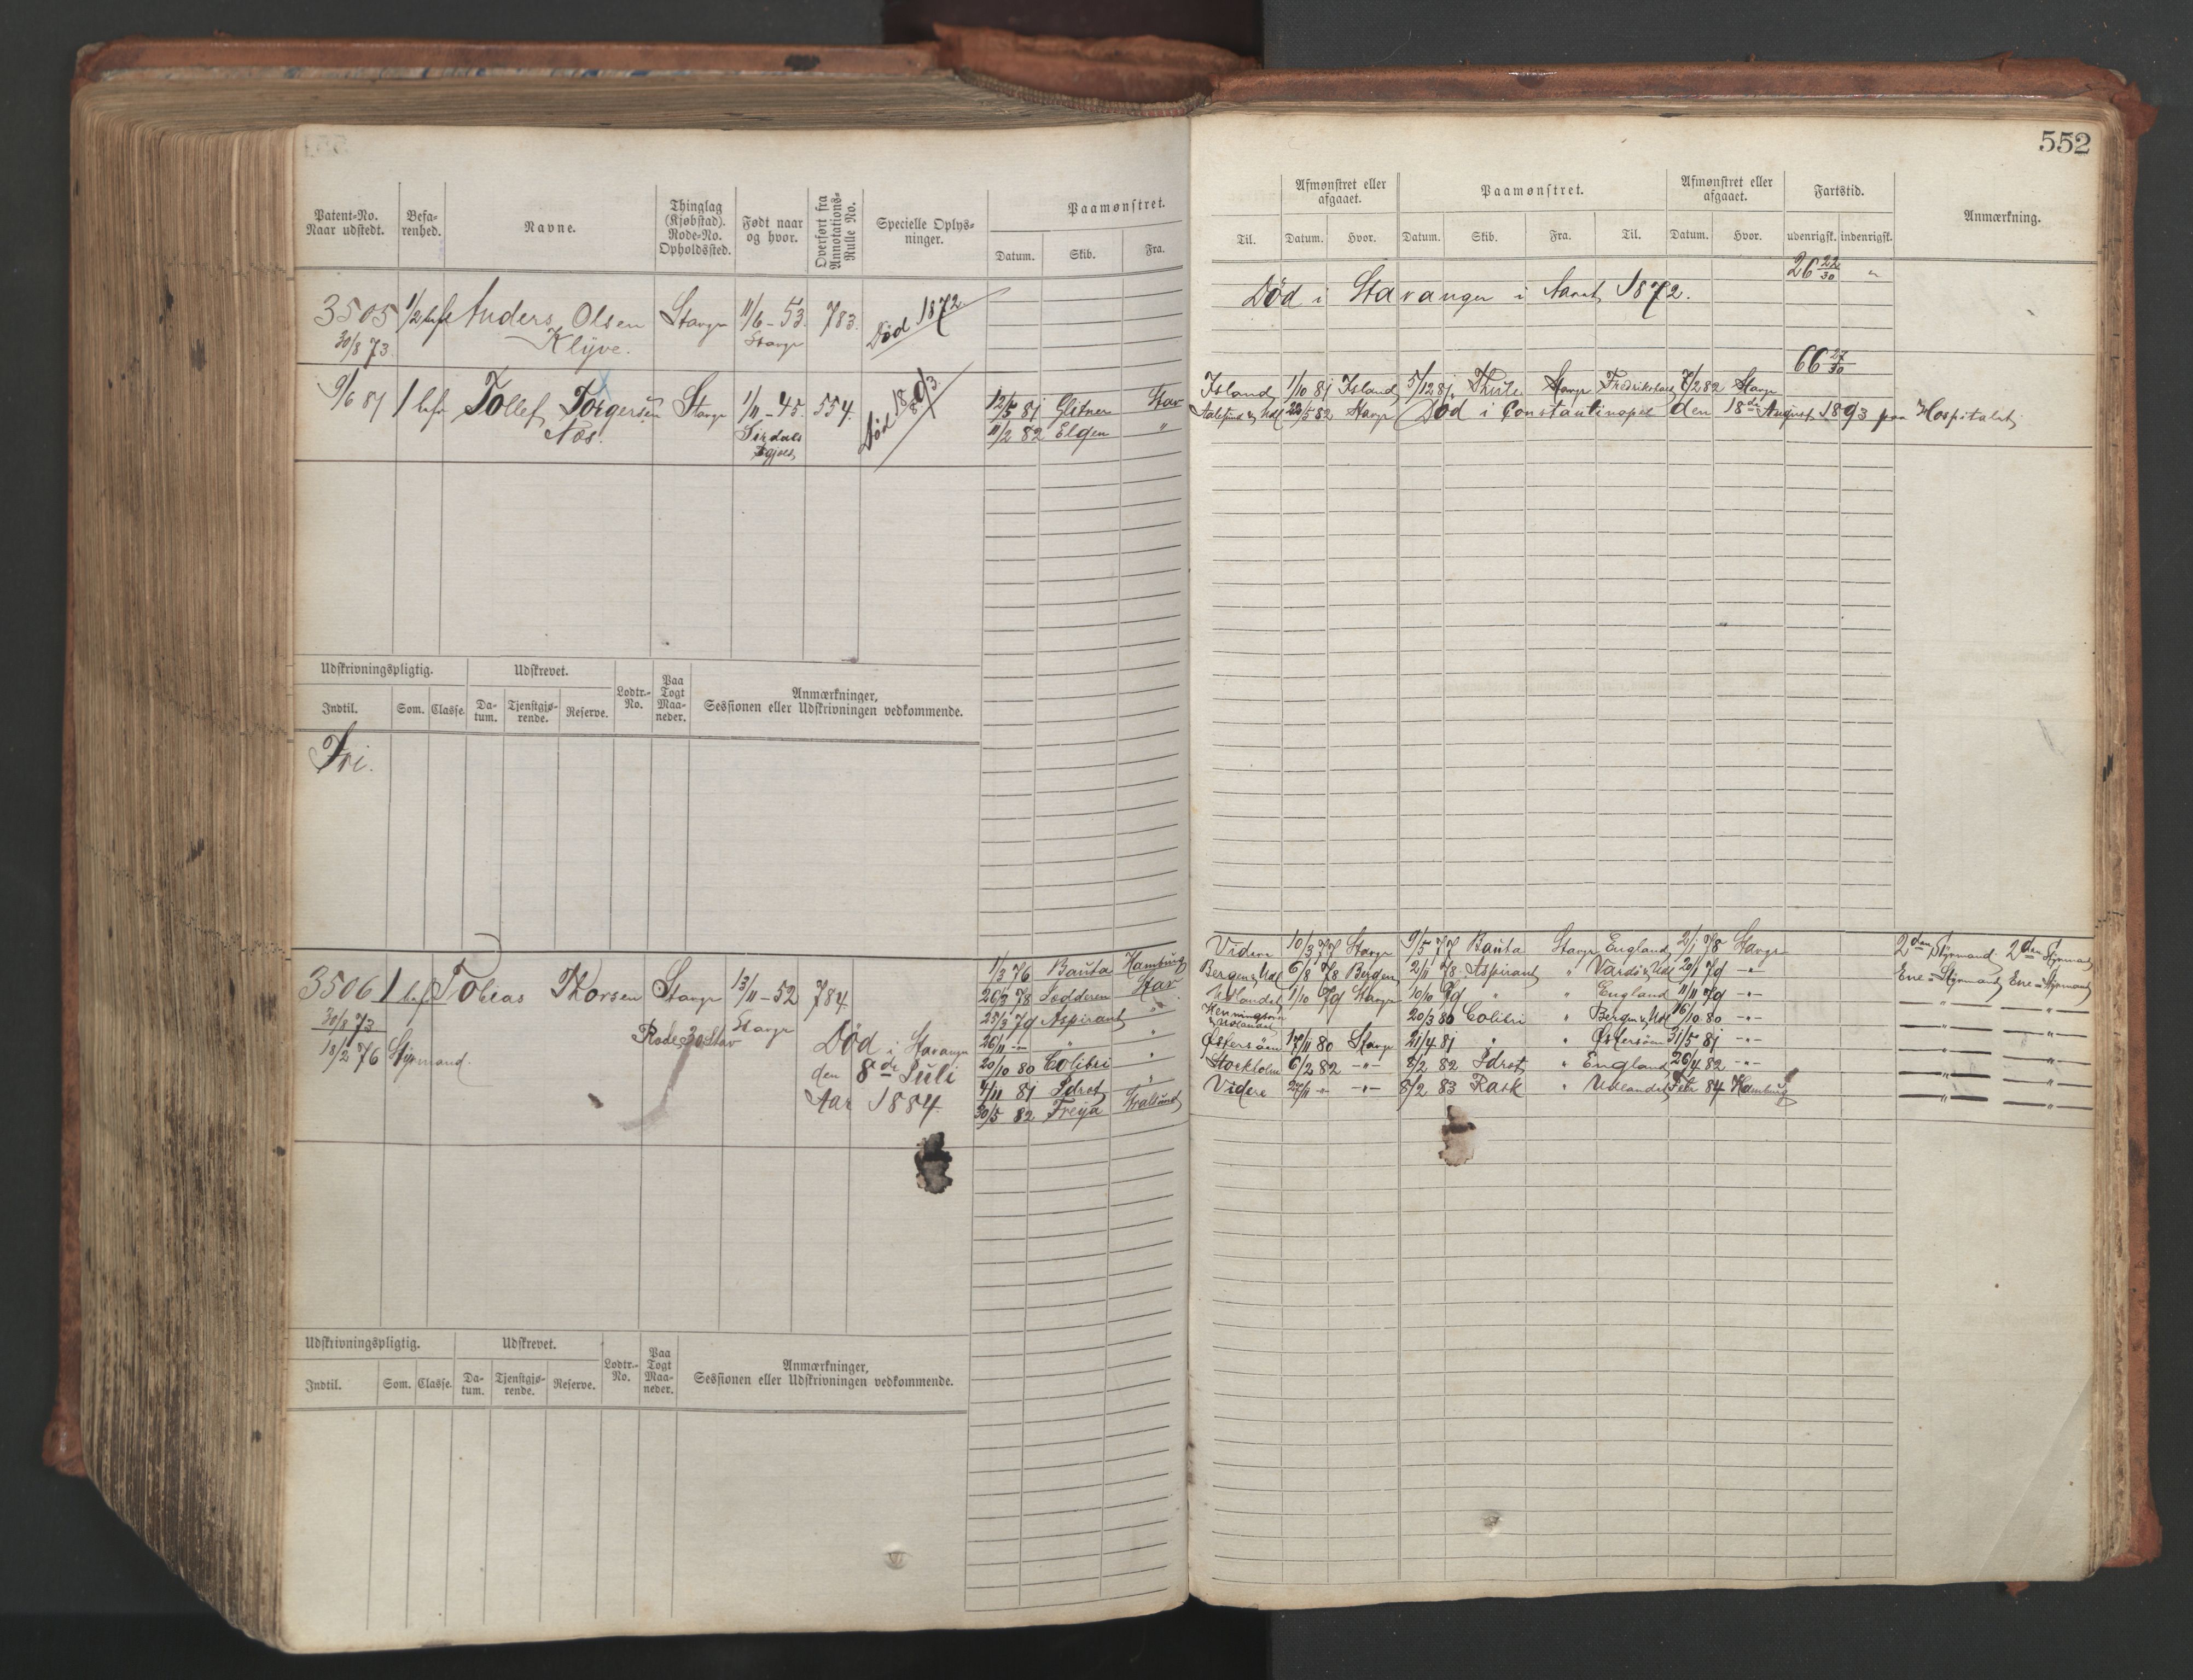 552
Patent-No. Naar udstedt.
Befarenhed.
Navne.
Thinglag (Kjøbstad). Rode-No. Opholdssted.
Født naar og hvor.
Overført fra Annotations-Rulle No.
Specielle Oplysninger.
Paamønstret.
Datum. Skib. Fra.
Til.
Afmønstret eller afgaaet.
Datum. Hvor.
Paamønstret.
Datum. Skib. Fra. Til.
Afmønstret eller afgaaet.
Datum. Hvor.
Fartstid.
udenrigsk. indenrigsk.
Anmærkning.
3505 1/2 bef Anders Olsen Stavgr 11/6-53. 783. Død 1872.
30/8 73. Klyve. Stavgr
Død i Stavanger i Aaret 1872.
26 22/30 "
66 27/30
9/6 81 1 bef Tollef Torgersen Stavgr 1/11-45. 554. Død 18 8/9 3.
Næs. Sirdals
12/5 81 Glitner Stav Island 1/10 81 Island 5/12 81 Thule Stavgr Fredrikstad 7/2 82 Stavgr
11/2 82 Elgen " 22/5 82 Stavgr Død i Constantinopel den 18de August 1893 paa Hospitalet
Udskrivningspligtig. Udskrevet. Lodtr.-No. Paa Togt Maaneder. Anmærkninger, Sessionen eller Udskrivningen vedkommende.
Indtil. Som. Classe. Datum. Tjenstgjørende. Reserve.
Fri.
3506 1 bef Tobias Thorsen Stavgr 13/11-52 784
30/8 73 Rode 20 Stav Stavgr
18/2 76 Styrmand.
Død i Stavanger
den 8de Juli
Aar 1884
1/3 76 Bauta Hamburg Videre 10/3 77 Stavgr 9/5 77 Bauta Stavgr England 2/1 78 Stavgr 2den Styrmand 2den Styrmand
26/3 78 Sødderen Stav Bergen & Udl 6/8 78 Bergen 2/11 78 Aspirant " Vardø & Udl 20/1 79 -"- Ene-Styrmand Ene-Styrmand
25/3 79 Aspirant " Udlandet 1/10 79 Stavgr 10/10 79 " " England 11/11 79 -"- " "
26/11 -- " " & Udlandet 20/3 80 Colibri " Bergen & Udl 16/10 80 -"- " "
20/10 80 Colibri " Østersöen 17/11 80 Stavgr 21/4 81 " " Østersöen 31/5 81 -"- " "
4/11 81 Idræt " Stockholm 6/2 82 -"- 8/2 82 Idræt " England 26/4 82 -"- " "
30/5 82 Freya Videre 27/11 " -"- 8/2 83 Rask " Udlandet Febr 84 Hamburg " "
Udskrivningspligtig. Udskrevet. Lodtr.-No. Paa Togt Maaneder. Anmærkninger, Sessionen eller Udskrivningen vedkommende.
Indtil. Som. Classe. Datum. Tjenstgjørende. Reserve.